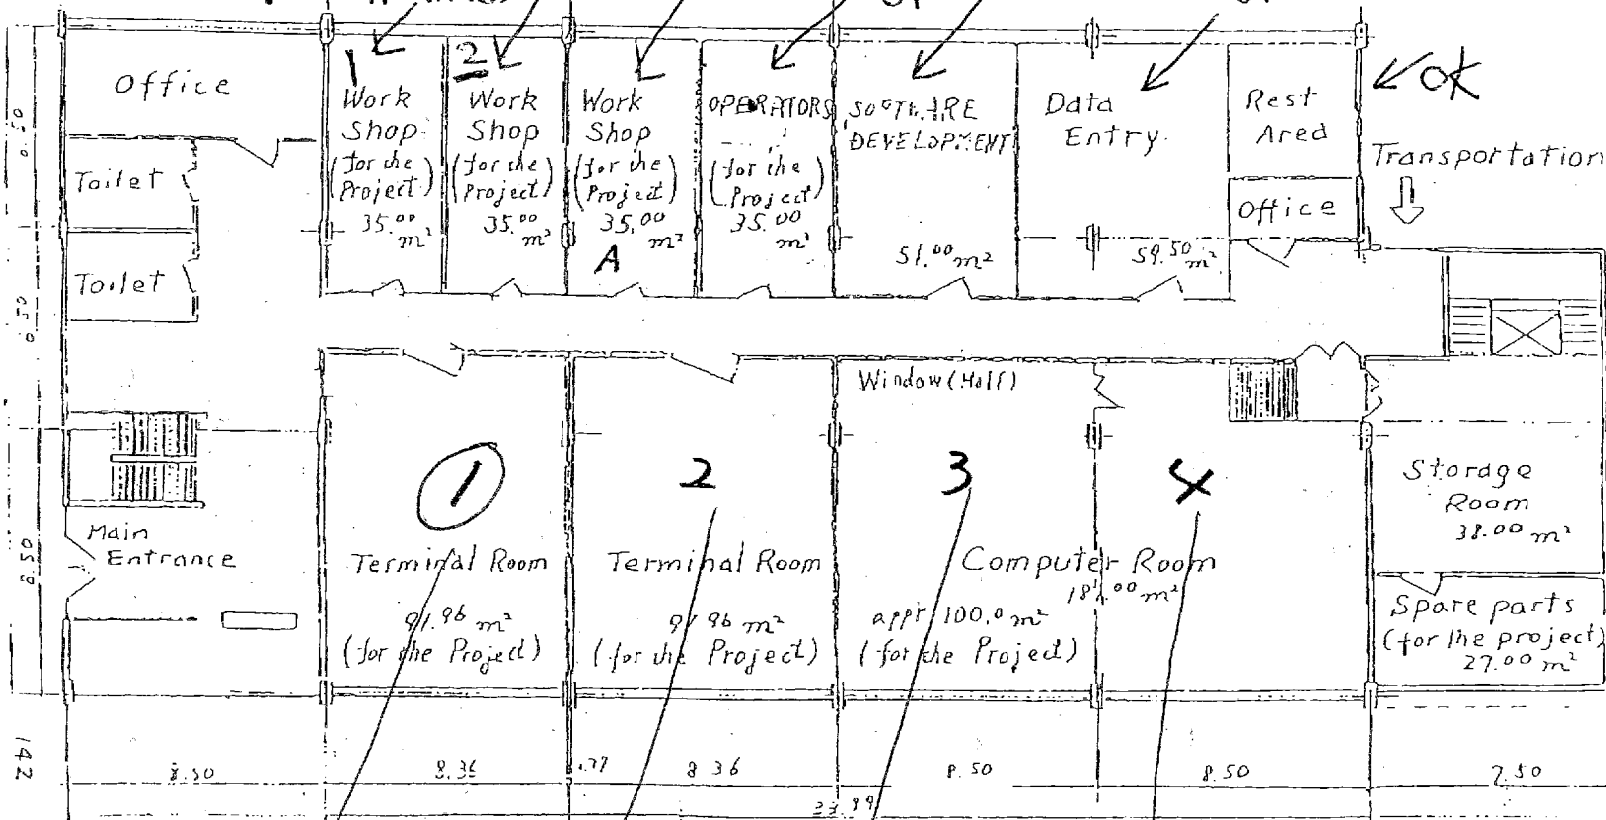 OK
Office
1
Work
Shop
(for the
Project)
35.00
m²
2
Work
Shop
(for the
Project)
35.00
m²
Work
Shop
(for the
Project)
35.00
m²
A
OPERATORS
(for the
Project)
35.00
m²
DEVELOPMENT
51.00 m²
Data
Entry
59.50 m²
Rest
Area
Office
Transportation
Toilet
Toilet
Window (Half)
Main
Entrance
1
Terminal Room
91.96 m²
(for the Project)
2
Terminal Room
91.96 m²
(for the Project)
3
4
Computer Room
appr 100.0 m²
(for the Project)
Storage
Room
38.00 m²
Spare parts
(for the project)
27.00 m²
8.50
8.36
8.36
8.50
8.50
7.50
142